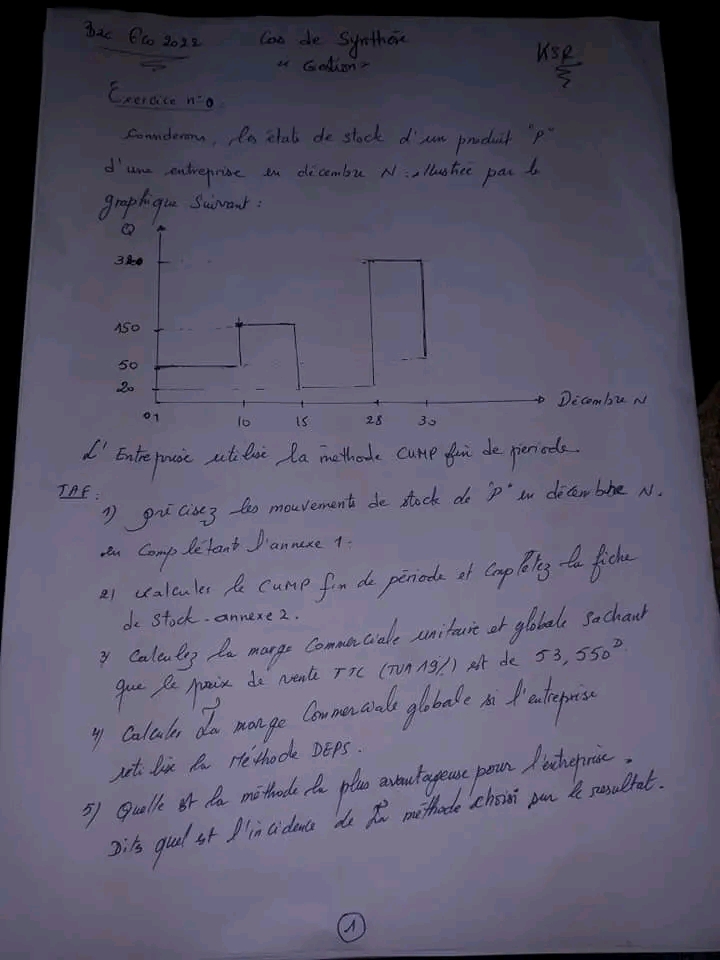 Bac Eco 2022 Cas de Synthèse KSR
"Gestion"
Exercice n°0
Considerons, les états de stock d'un produit "P"
d'une entreprise en décembre N illustrée par le
graphique Suivant :
Q
150
50
20
01 10 15 28 30 Décembre N
L'Entreprise utilise la méthode CUMP fin de periode.
TAF :
1) précisez les mouvements de stock de "P" en décembre N.
en Complétant l'annexe 1.
2) calculez le CUMP fin de période et Complétez la fiche
de stock - annexe 2.
3) Calculez la marge Commerciale unitaire et globale Sachant
que le prix de vente TTC (TVA 19%) est de 53,550D.
4) Calculez La marge Commerciale globale si l'entreprise
utilise la Méthode DEPS.
5) Quelle est la méthode la plus avantageuse pour l'entreprise.
Dits quel est l'incidence de La méthode choisi sur le resultat.
1